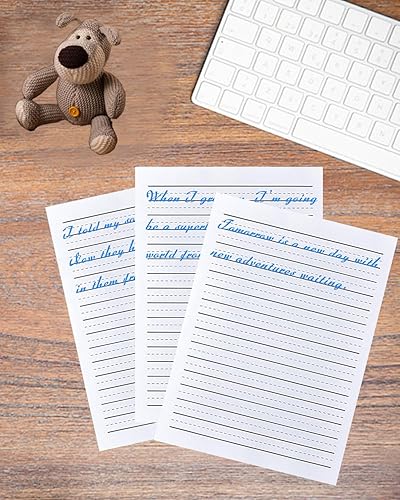 I told my
how they
in them
When I I'm going
be a
world
Tomorrow is a new day with
new adventures waiting